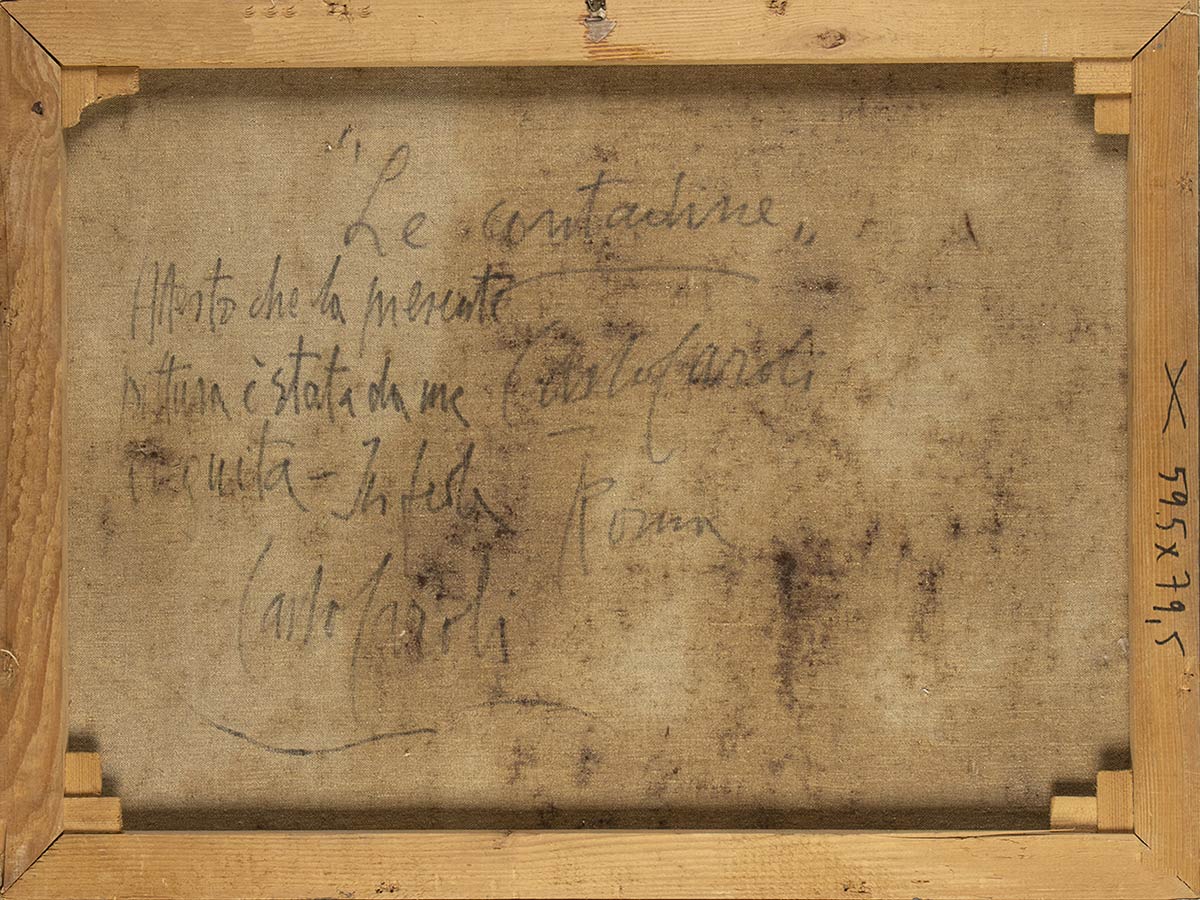 "Le contadine"
Attesto che la presente
pittura è stata da me Carlo Caroli
eseguita - In fede Roma
Carlo Caroli
X 59.5 x 79,5